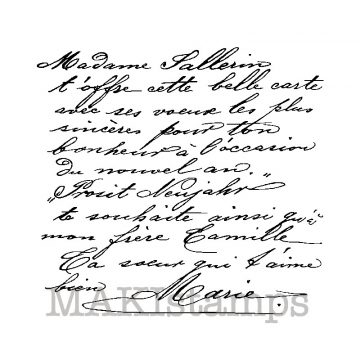 Madame Sallerin
t'offre cette belle carte
avec ses voeux les plus
sincères pour ton
bonheur à l'occasion
du nouvel an.
„Prosit Neujahr"
te souhaite ainsi qu'à
mon frère Camille
Ta soeur qui t'aime
bien Marie
MAKIstamps